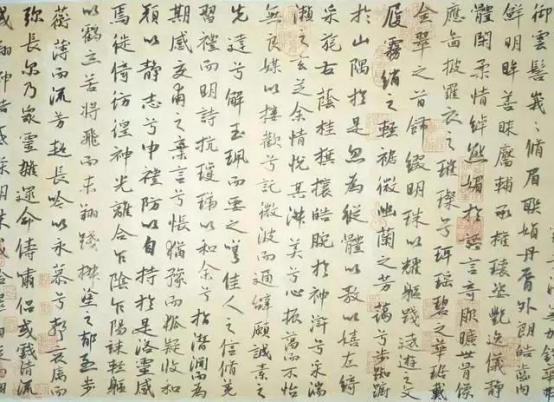 御雲髻峩峩脩眉聯娟丹唇外朗皓齒內
鮮明眸善睞靨輔承權瓌姿艷逸儀靜
體閑柔情綽態媚於語言奇服曠世骨像
應啚披羅衣之璀璨兮珥瑤碧之華琚戴
金翠之首飾綴明珠以耀軀踐遠遊之文
履霧綃之輕裾微幽蘭之芳藹兮步踟躕
於山隅於是忽焉縱體以敖以嬉左倚
采旄右蔭桂旗攘皓腕於神滸兮采湍
瀨之玄芝余情悅其淑美兮心振蕩而不怡
無良媒以接歡兮託微波而通辭願誠素之
先達兮解玉珮而要之嗟佳人之信脩羌
習禮而明詩抗瓊珶以和余兮指潛淵而為
期感交甫之棄言兮悵猶豫而狐疑收和
顏以靜志兮申禮防以自持於是洛靈感
焉徙倚彷徨神光離合乍陰乍陽竦輕軀
以鶴立若將飛而未翔踐椒塗之郁烈步
蘅薄而流芳超長吟以永慕兮聲哀厲而
彌長爾乃眾靈雜遝命儔嘯侶或戲清流
或翔神渚或采明珠或拾翠羽